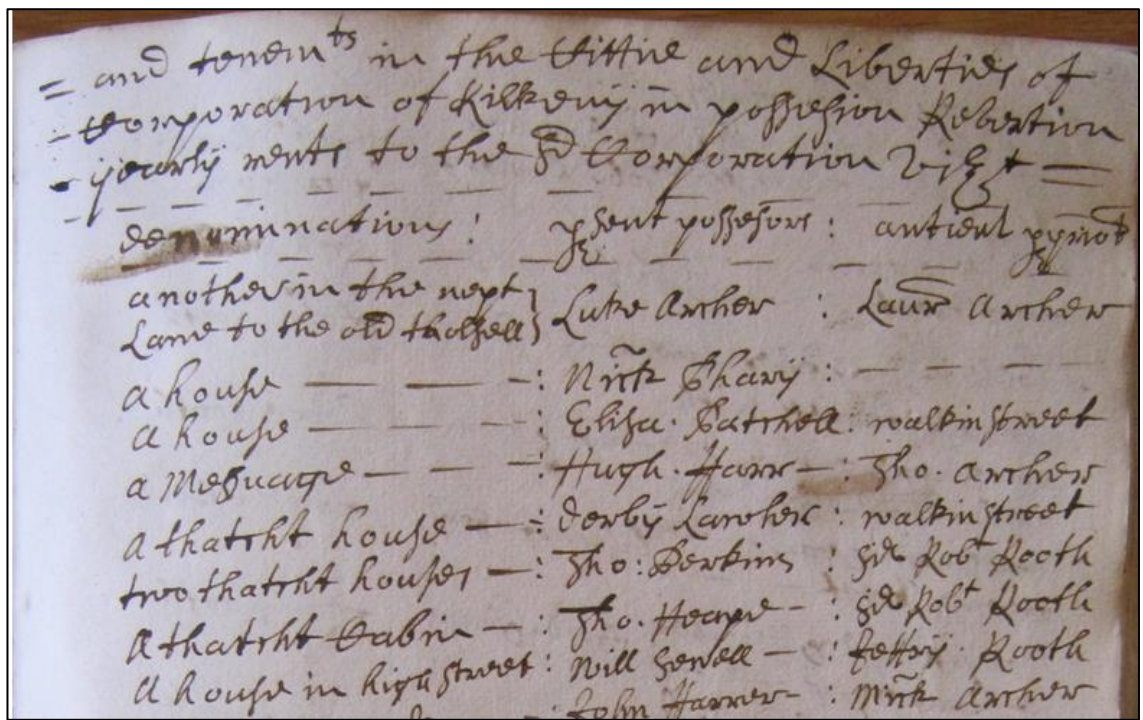 = and tenemts in the Cittie and Liberties of
- Corporation of Kilkeny in possession Rebertion
- yearly rents to the sd Corporation vizt =
denominations : psent possesors : antient
another in the next } Luke Archer : Laur Archer
Lane to the old tholsell }
a house — — — : Nick :
a house — — — : Eliza. Patchell : walkinstreet
a Messuage — — — : Hugh. Harr — : Tho. Archer
A thatcht house — : derby Lawler : walkinstreet
two thatcht houses — : Tho: Perkins : Sr Robt Rooth
A thatcht Cabin — : Tho. Heape — : Sr Robt Rooth
A house in high street : Will Sewell — : Jeffry. Rooth
John — : Mick Archer